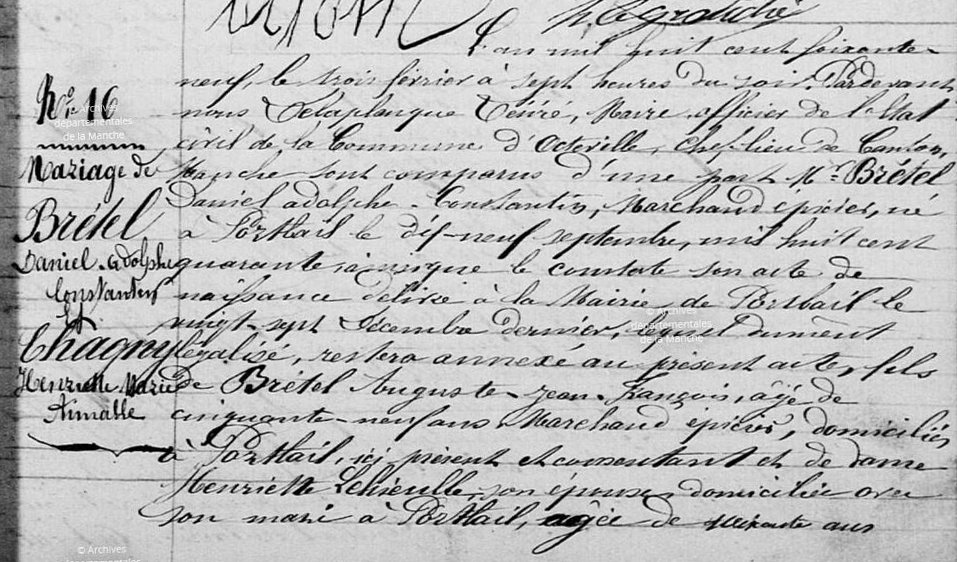 L'an mil huit cent soixante-
neuf, le trois février à sept heures du soir. Pardevant
nous Delaplanque Désiré, Maire officier de l'Etat
civil de la Commune d'Octeville, Chef-lieu de Canton,
Manche sont comparus d'une part Mr. Brétel
Daniel adolphe Constantin, Marchand épicier, né
à Portbail le dix-neuf septembre, mil huit cent
quarante ainsi que le constate son acte de
naissance délivré à la Mairie de Portbail le
vingt-sept Décembre dernier, lequel dûment
légalisé, restera annexé au présent acte, fils
de Brétel Auguste Jean François, âgé de
cinquante-neuf ans Marchand épicier, domiciliés
à Portbail, ici présent et consentant et de dame
Henriette son épouse domiciliée avec
son mari à Portbail, agée de soixante ans
No. 16
Mariage de
Brétel
Daniel Adolphe
Constantin
Et
Chagny
Henriette Marie
Aimable
© Archives
départementales
de la Manche
© Archives
départementales
de la Manche
© Archives
départementales